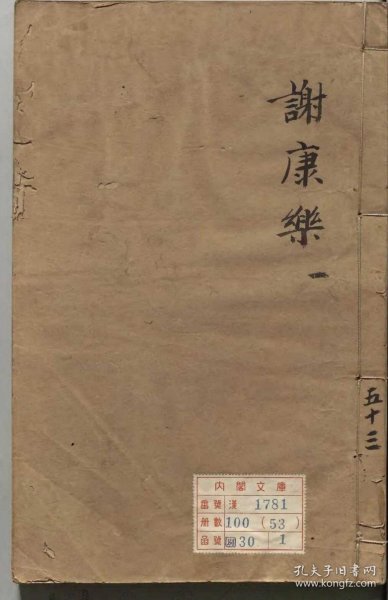 謝康樂一
五十三
内閣文庫
番號 漢 1781
册數 100 (53)
函號 30 1
孔夫子旧书网
www.kongfz.com